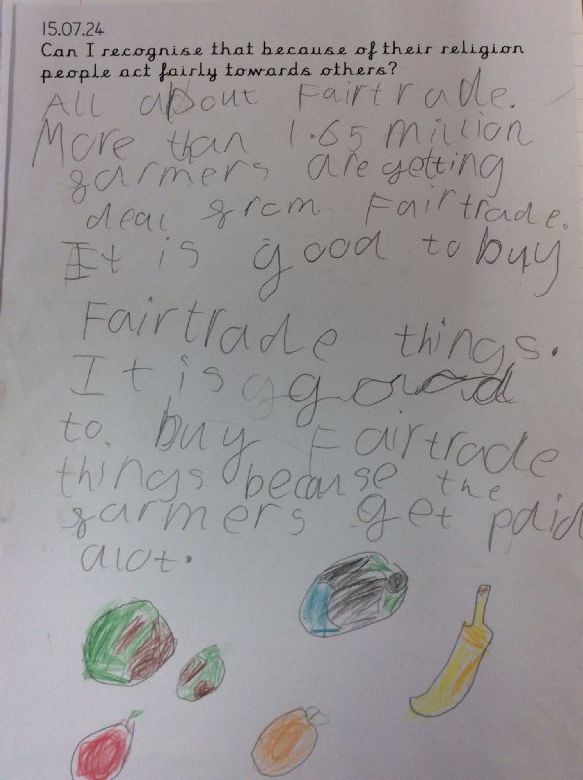 15.07.24
Can I recognise that because of their religion
people act fairly towards others?
All about Fairtrade.
More than 1.65 million
farmers are getting
deal from Fairtrade.
It is good to buy
Fairtrade things.
It is good
to buy Fairtrade
things because the
farmers get paid
alot.